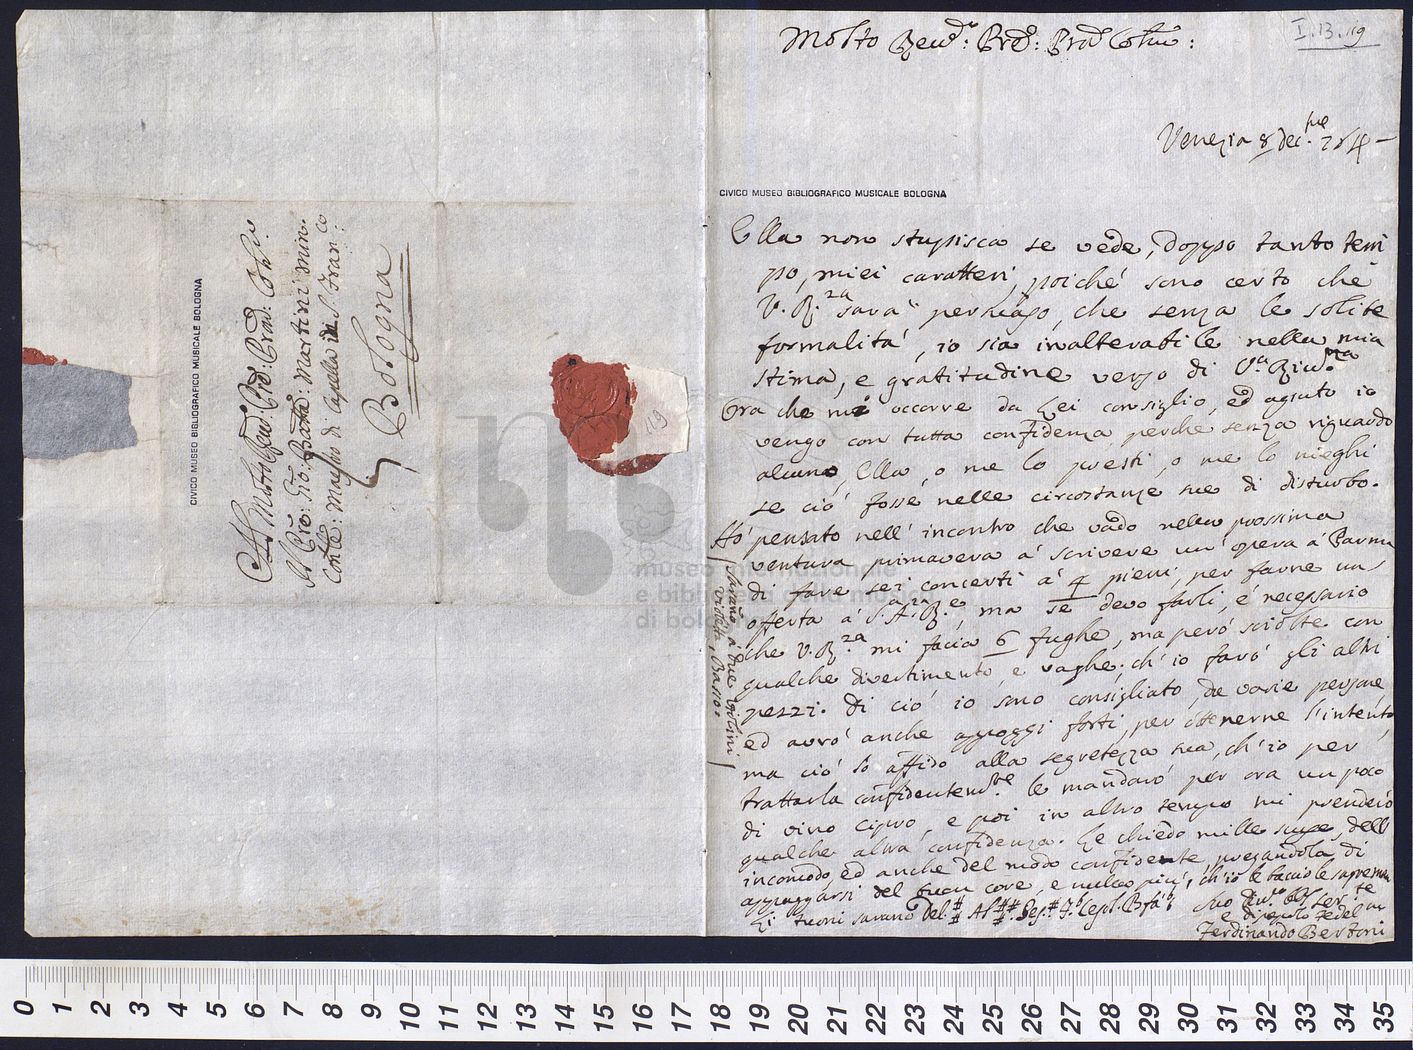 Molto Rev.do: Prê: Prad Colmo:
I.13.119
Venezia 8 Dec.bre 764 –
CIVICO MUSEO BIBLIOGRAFICO MUSICALE BOLOGNA
Ella non stupisca se vede, doppo tanto tem
po, miei caratteri, poiché sono certo che
V. R.za sarà persuaso, che senza le solite
formalità, io sia inalterabile nella mia
stima, e gratitudine verso di V.a Riv.ma
Ora che mi occorre da Lei consiglio, ed agiuto io
vengo con tutta confidenza perche senza riguardo
alcuno, Ella, o me lo presti, o me lo nieghi
se ciò fosse nelle circostanze sue di disturbo.
Hò pensato nell' incontro che vado nella prossima
ventura primavera à scrivere un' opera à Parma
di fare sei concerti à 4 pieni, per farne un
offerta à S. A. R.le, ma se devo farli, é necessario
che V. R.za mi facia 6 fughe, ma però sciolte con
qualche divertimento, e vaghe; ch' io farò gli altri
pezzi. Di ciò io sono consigliato da varie persone,
ed avrò anche appoggi forti, per ottenerne l'intento,
ma ciò lo affido alla segretezza sua, ch' io per
trattarla confidentem.te le mandarò per ora un poco
di vino Cipro, e poi in altro tempo mi prenderò
qualche altra confidenza. Le chiedo mille scuse, dell'
incomodo, ed anche del modo confidente, pregandola di
appagarsi del buon core, e nulla più, ch' io le faccio le supreme
Li tuoni saranno Del.# Al.# Ges.# F. Cesol. Bfà.
Suo Div.mo Obl. ser.te
e discepolo Fedel.mo
Ferdinando Bertoni
/ Saranno à due violini /
violetta, Basso.
Al Molto Rev.do: Prê: Prad: Colmo.
Il Prê: Gio: Batta: Martini Min.
Conle: Maestro di Capella in S. Fran.co
Bologna
CIVICO MUSEO BIBLIOGRAFICO MUSICALE BOLOGNA
119
museo internazionale
e biblioteca della musica
di bologna
0 1 2 3 4 5 6 7 8 9 10 11 12 13 14 15 16 17 18 19 20 21 22 23 24 25 26 27 28 29 30 31 32 33 34 35